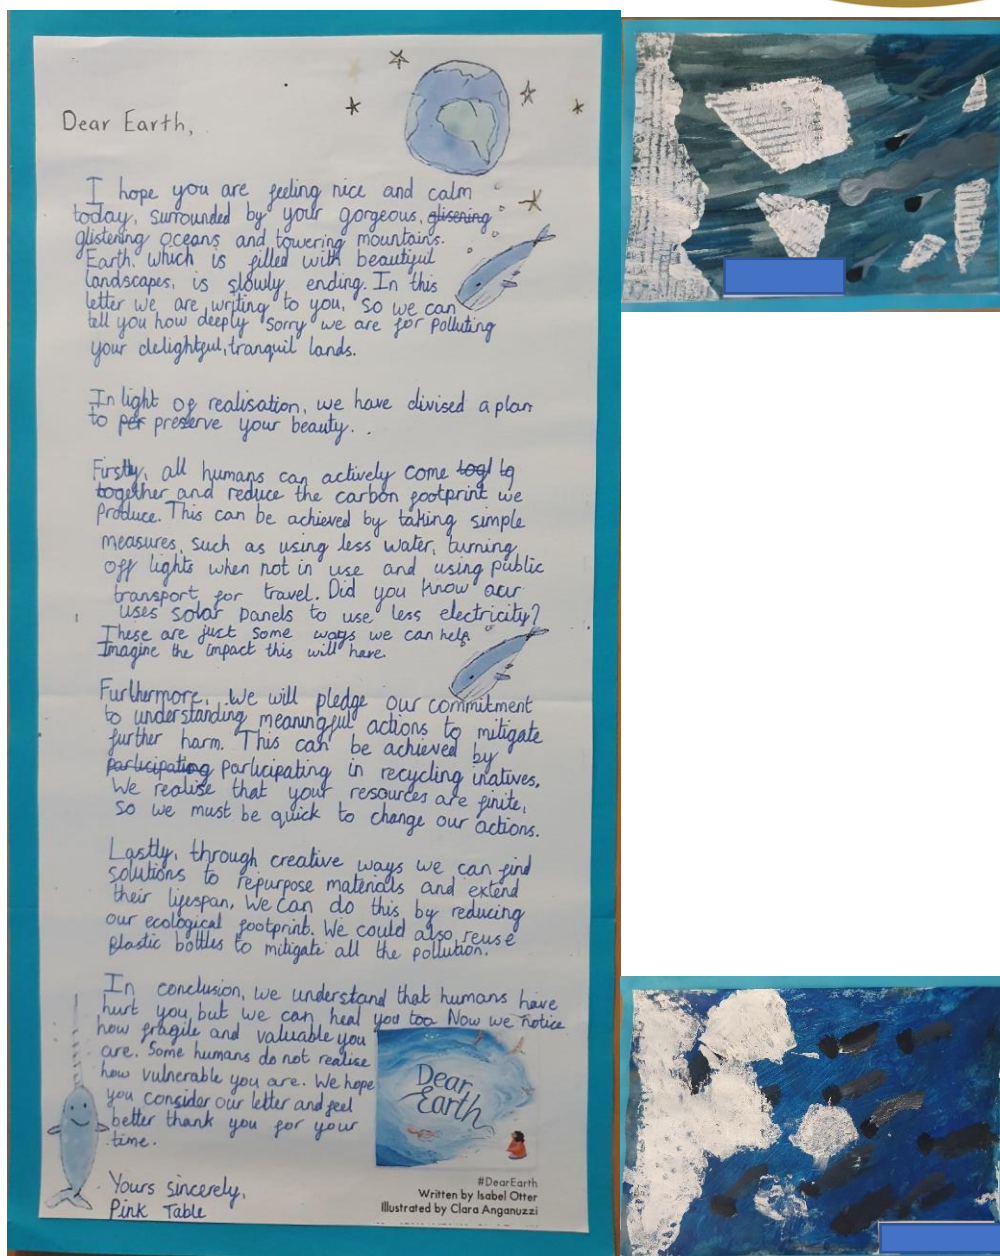 Dear Earth,
I hope you are feeling nice and calm
today, surrounded by your gorgeous, glisening
glistening oceans and towering mountains.
Earth, which is filled with beautiful
landscapes, is slowly ending. In this
letter we are writing to you, so we can
tell you how deeply sorry we are for polluting
your delightful, tranquil lands.
In light of realisation, we have divised a plan
to per preserve your beauty. .
Firstly, all humans can actively come togl tg
together and reduce the carbon footprint we
produce. This can be achieved by taking simple
measures, such as using less water, turning
off lights when not in use and using public
transport for travel. Did you know our
uses solar panels to use less electricity?
These are just some ways we can help.
Imagine the impact this will have.
Furthermore, we will pledge our commitment
to understanding meaningful actions to mitigate
further harm. This can be achieved by
participating participating in recycling inatives.
We realise that your resources are finite,
so we must be quick to change our actions.
Lastly, through creative ways we can find
solutions to repurpose materials and extend
their lifespan. We can do this by reducing
our ecological footprint. We could also reuse
plastic bottles to mitigate all the pollution.
In conclusion, we understand that humans have
hurt you, but we can heal you too. Now we notice
how fragile and valuable you
are. Some humans do not realise
how vulnerable you are. We hope
you consider our letter and feel
better thank you for your
time.
Yours sincerely,
Pink Table
Dear
Earth
#DearEarth
Written by Isabel Otter
Illustrated by Clara Anganuzzi